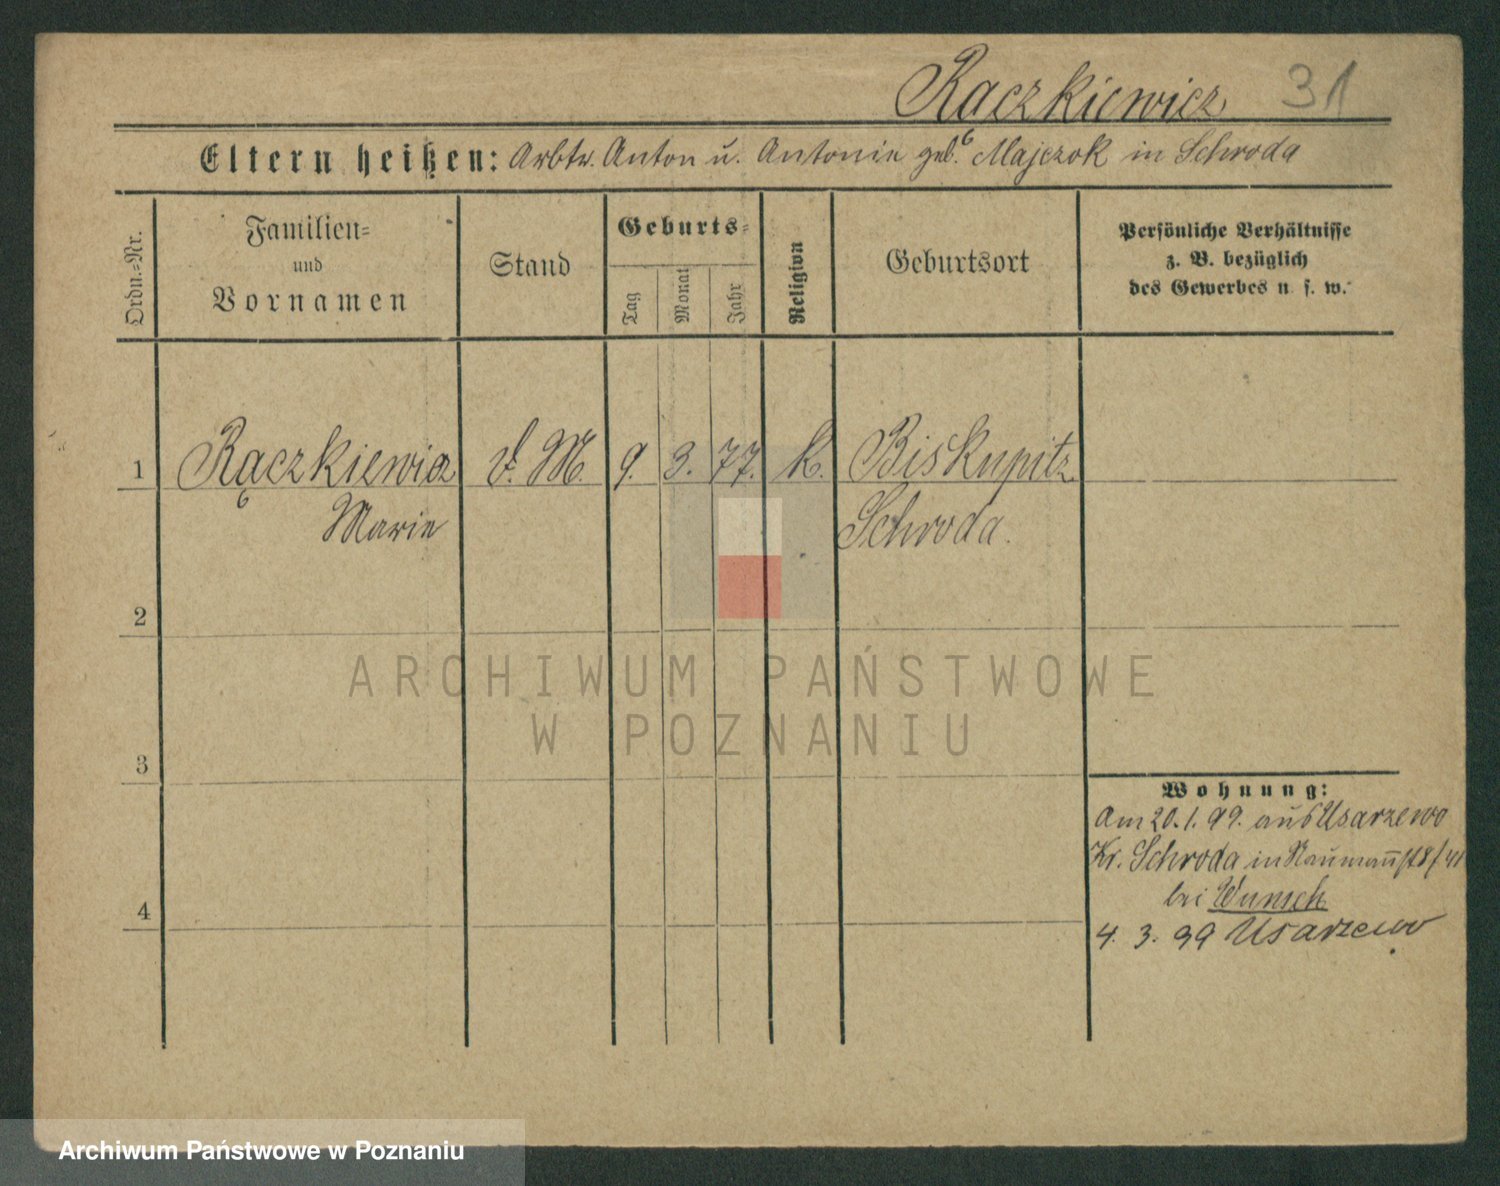 Raczkiewicz 31
Eltern heißen: Arbtr. Anton u. Antonie geb. Majczok in Schroda
Ordn.-Nr.
Familien-
und
Vornamen
Stand
Geburts-
Tag
Monat
Jahr
Religion
Geburtsort
Persönliche Verhältnisse
z. B. bezüglich
des Gewerbes u. s. w.
1 Rączkiewicz d. M. 9. 3. 77. k. Biskupitz
Marie Schroda.
2
ARCHIWUM PAŃSTWOWE
W POZNANIU
3
Wohnung:
Am 20.1.99. aus Usarzewo
Kr. Schroda in Naumannst 8/41
4 bei Wunsch
4. 3. 99 Usarzewo
Archiwum Państwowe w Poznaniu